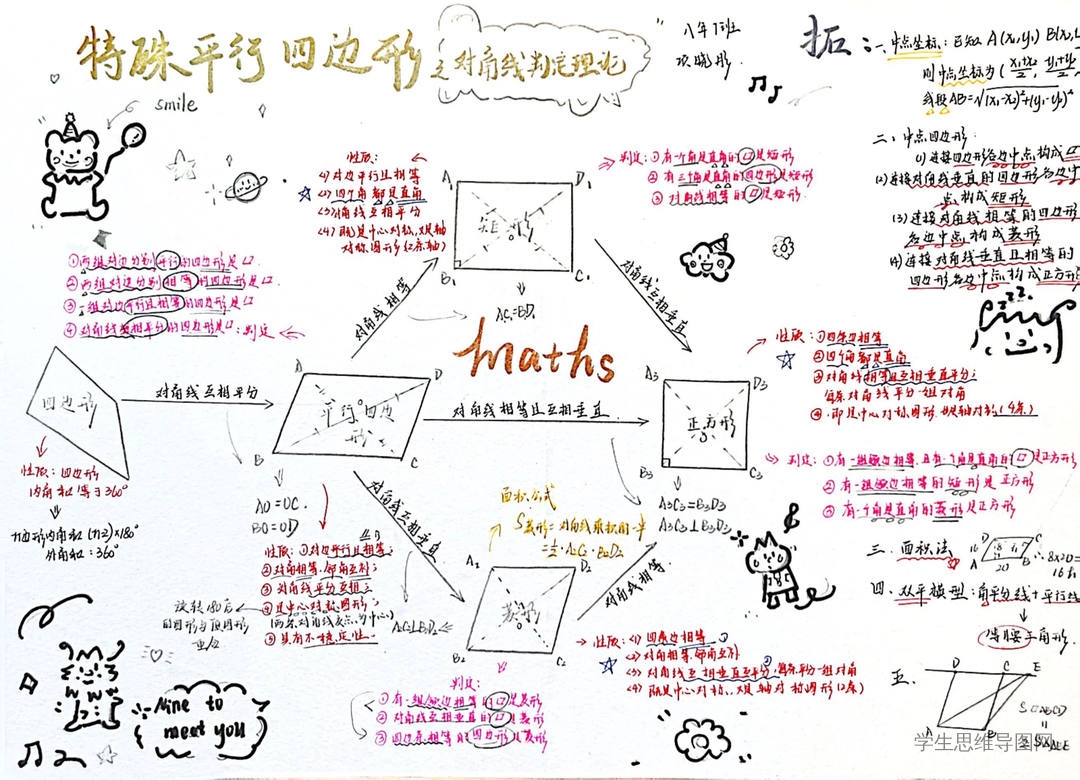 特殊平行四边形
之对角线判定理论
八年1班
smile
拓：
一、中点坐标：已知 A (x₁,y₁) B(x₂,
则中点坐标为 (x₁+x₂/2, y₁+y₂/2,
线段AB=√(x₁-x₂)²+(y₁-y₂)²
二、中点四边形：
(1) 连接四边形各边中点构成▱
(2) 连接对角线垂直的四边形各边中
点构成矩形
(3) 连接对角线相等的四边形
各边中点构成菱形
(4) 连接对角线垂直且相等的
四边形各边中点构成正方形
性质：
(1) 对边平行且相等
(2) 四个角都是直角
(3) 对角线互相平分
(4) 既是中心对称，又是轴
对称图形(2条轴)
A₁
D₁
矩形
B₁
C₁
AC₁=BD₁
判定：①有一个角是直角的▱是矩形
②有三个角是直角的四边形是矩形
③对角线相等的▱是矩形
①两组对边分别平行的四边形是▱
②两组对边分别相等的四边形是▱
③一组对边平行且相等的四边形是▱
④对角线互相平分的四边形是▱：判定
对角线相等
对角线互相垂直
maths
zzz
四边形
对角线互相平分
A
D
平行四边形
B
C
对角线相等且互相垂直
A₃
D₃
正方形
B₃
C₃
性质：①四条边相等
②四个角都是直角
③对角线相等且互相垂直平分；
每条对角线平分一组对角
④即是中心对称图形也是轴对称(4条)
判定：①有一组邻边相等，且有一个角是直角的▱是正方形
②有一组邻边相等的矩形是正方形
③有一个角是直角的菱形是正方形
性质：四边形
内角和等于360°
n边形内角和(n-2)×180°
外角和：360°
AO=OC.
BO=OD
对角线互相垂直
面积公式
S菱形=对角线乘积的一半
=½·A₂C₂·B₂D₂
A₃C₃=B₃D₃
A₃C₃⊥B₃D₃
性质：①对边平行且相等；
②对角相等，邻角互补；
③对角线平分互相；
④是中心对称图形；
(两条对角线交点为中心)
⑤具有不稳定性
旋转180后
的图形与原图形
重合
A₂C₂⊥B₂D₂
A₂
D₂
菱形
B₂
C₂
对角线相等
性质：(1) 四条边相等
(2) 对角相等，邻角互补
(3) 对角线互相垂直平分，每条平分一组对角
(4) 既是中心对称，又是轴对称图形(2条)
判定：
①有一组邻边相等的▱是菱形
②对角线互相垂直的▱是菱形
③四边都相等的四边形是菱形
三、面积法
D
C
A
20
B
∴8×20=
16h
四、双平模型：角平分线+平行线
等腰三角形.
五、
D
C
E
A
B
S▱ABCD
Nine to
meet you
学生思维导图网